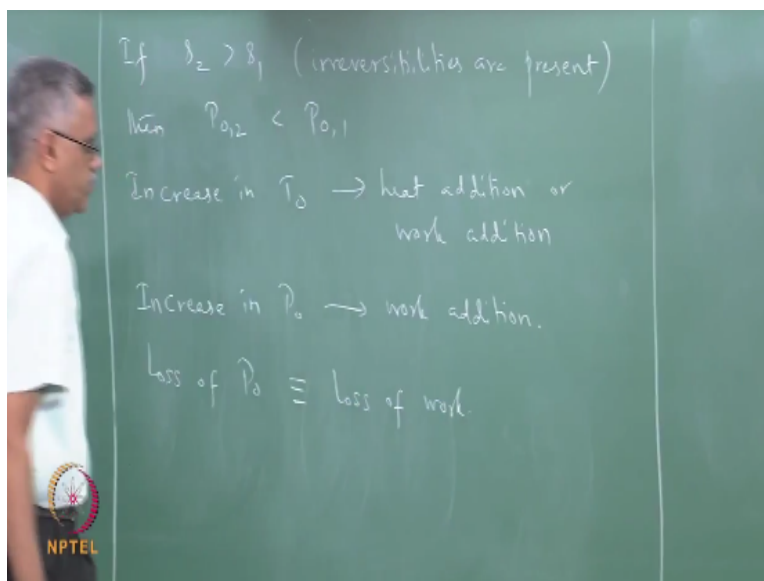 If s₂ > s₁ (irreversibilities are present)
then P₀,₂ < P₀,₁
Increase in T₀ → heat addition or
work addition
Increase in P₀ → work addition.
Loss of P₀ ≡ Loss of work.
NPTEL